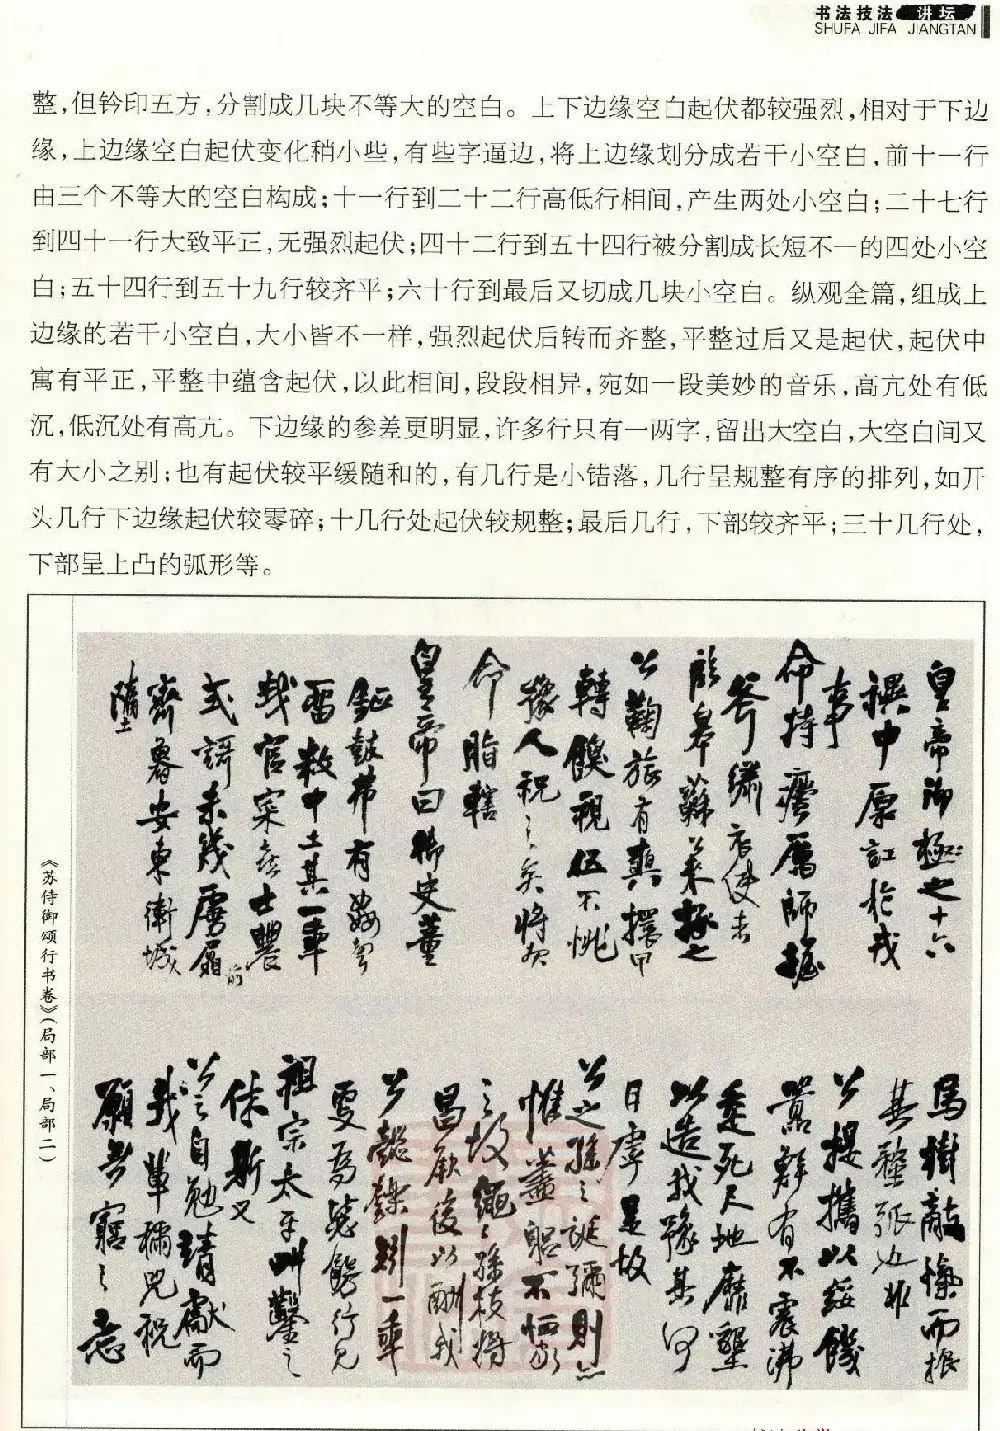 书法技法 讲坛
SHUFA JIFA JIANGTAN
整,但钤印五方,分割成几块不等大的空白。上下边缘空白起伏都较强烈,相对于下边
缘,上边缘空白起伏变化稍小些,有些字逼边,将上边缘划分成若干小空白,前十一行
由三个不等大的空白构成;十一行到二十二行高低行相间,产生两处小空白;二十七行
到四十一行大致平正,无强烈起伏;四十二行到五十四行被分割成长短不一的四处小空
白;五十四行到五十九行较齐平;六十行到最后又切成几块小空白。纵观全篇,组成上
边缘的若干小空白,大小皆不一样,强烈起伏后转而齐整,平整过后又是起伏,起伏中
寓有平正,平整中蕴含起伏,以此相间,段段相异,宛如一段美妙的音乐,高亢处有低
沉,低沉处有高亢。下边缘的参差更明显,许多行只有一两字,留出大空白,大空白间又
有大小之别;也有起伏较平缓随和的,有几行是小错落,几行呈规整有序的排列,如开
头几行下边缘起伏较零碎;十几行处起伏较规整;最后几行,下部较齐平;三十几行处,
下部呈上凸的弧形等。
皇帝御極之十六
禩中原訌於戎
事
命持斧
繡衣使未
公鞠旅有輿擐甲
轉餽視伍不恌
豫人祝之矣將
命脂轄
皇帝曰御史董
鉦鼓弗有
雷救中土其一乘
我官寀㐂士農
式謌未幾虜
齊魯安東衛城
隳
馬樹敵愾而振
其弧也非
公提攜以綏饑
羣有不震沸
委死尺地靡墾
以造我豫其何
日寧是故
公之孫之誕彌則
惟藎躬不恤家
之故繩之孫枝將
昌厥後以酬我
公懿鑠則一乘
更為行兒
祖宗太平叫鑿之
休斯又
公之自勉請獻而
我輩稱兕祝
願無窮之意
《苏侍御颂行书卷》(局部一、局部二)